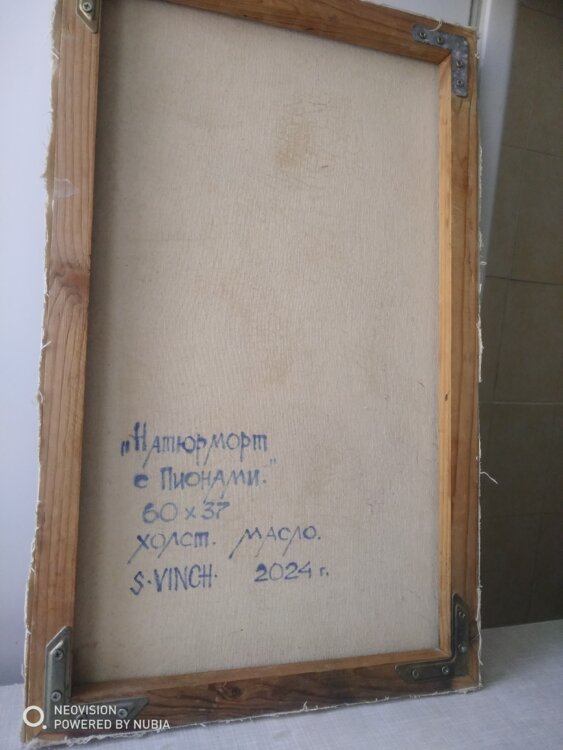 „Натюрморт
с Пионами."
60 х 37
холст. масло.
S·VINCH· 2024 г.
NEOVISION
POWERED BY NUBIA